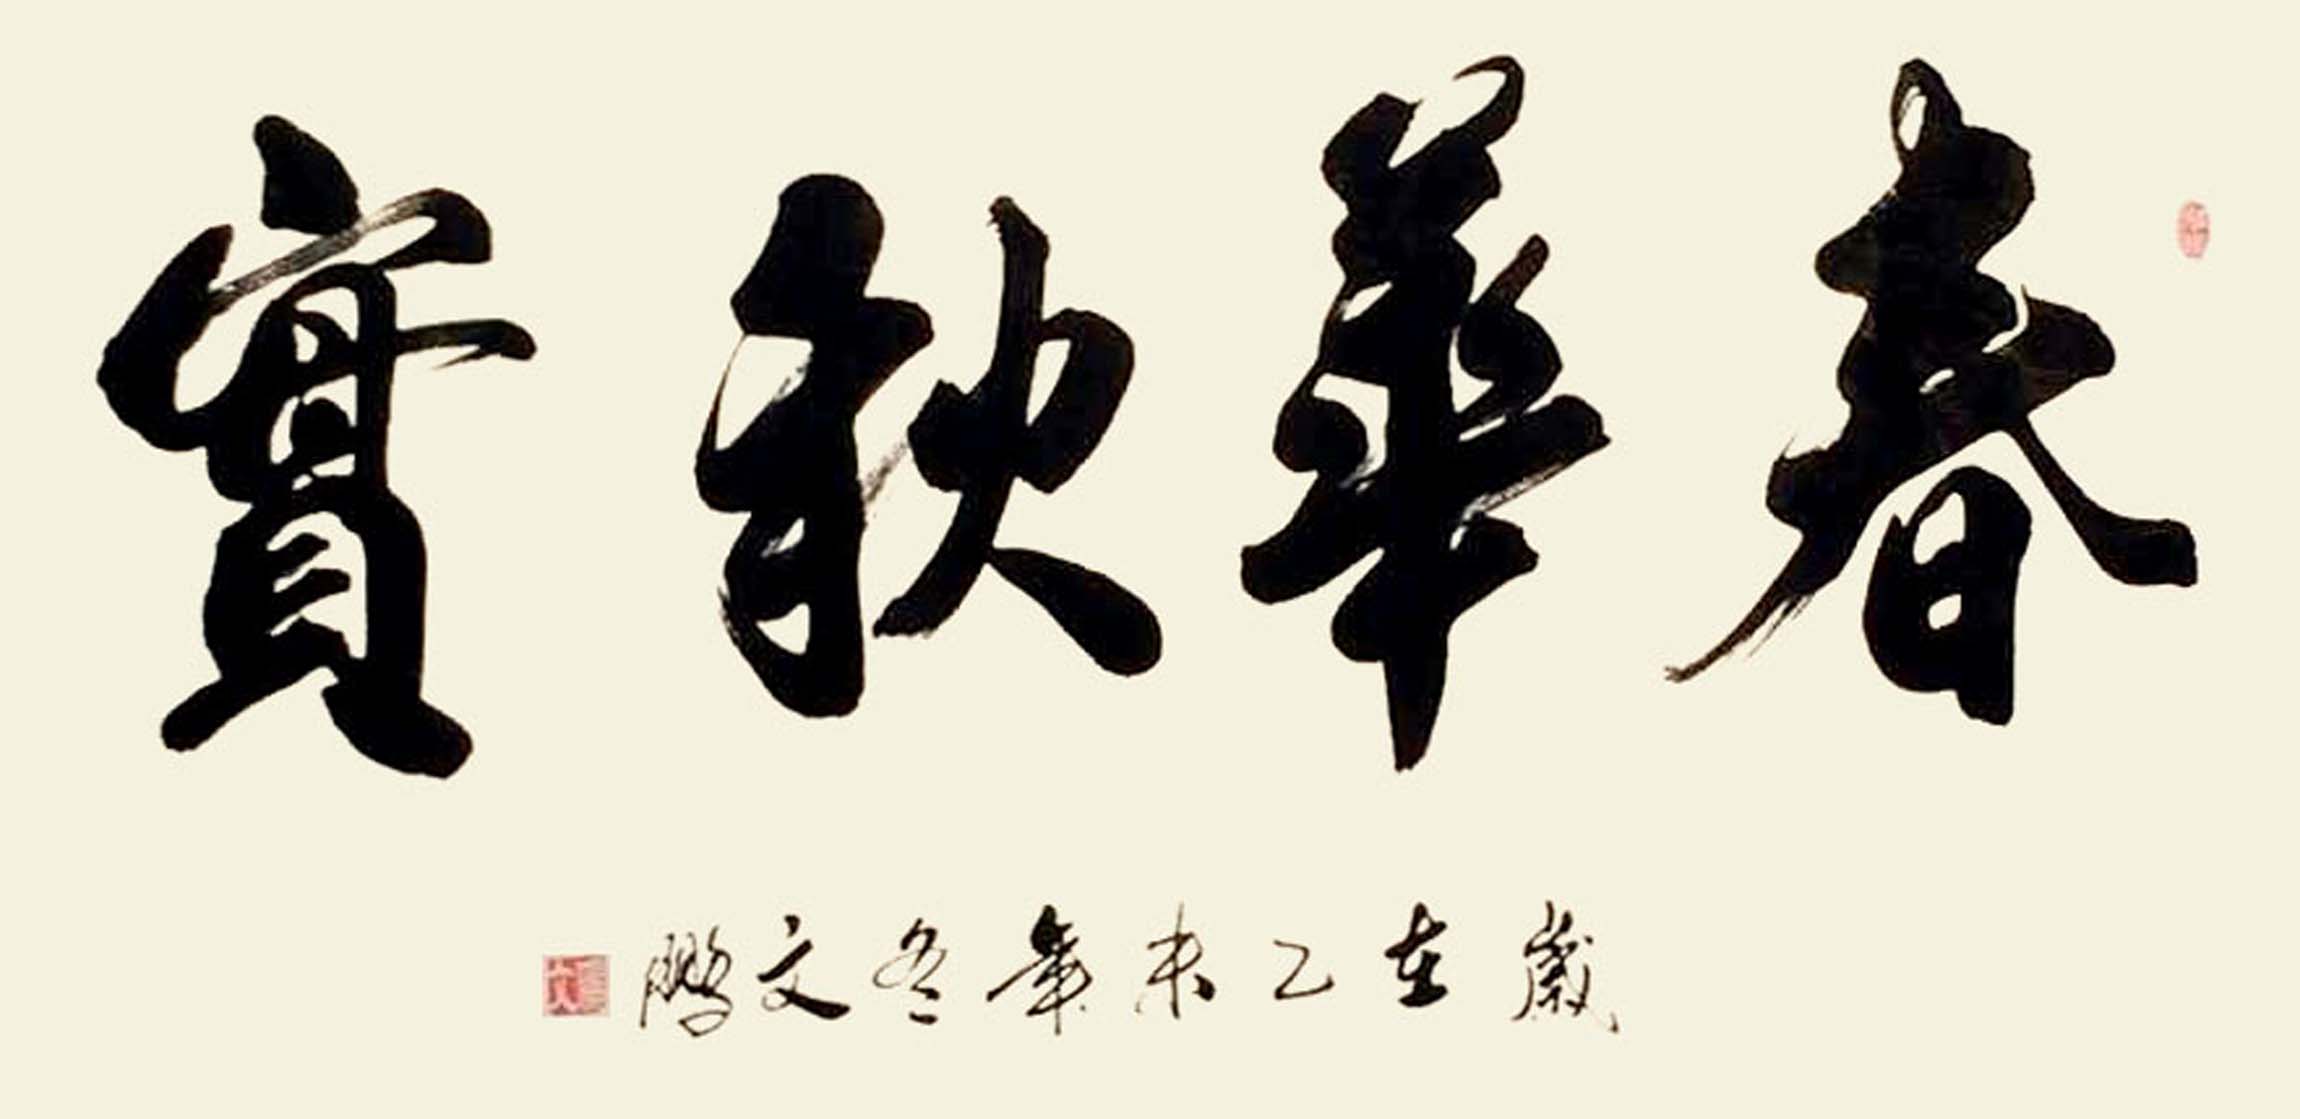 春華秋實
歲在乙未年冬文鵬